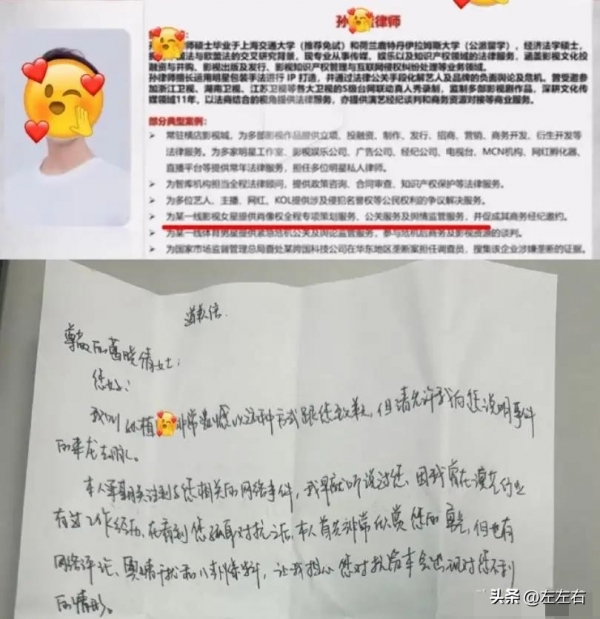 孙 律师
师硕士毕业于上海交通大学（推荐免试）和荷兰鹿特丹伊拉姆斯大学（公派留学），经济法学硕士，
法与欧盟法的交叉研究背景，现专业从事传媒、娱乐以及知识产权领域的法律服务，涵盖影视文化投
融与并、影视出版及发行、影视知识产权管理与互联网侵权纠纷处理等业务领域。
孙律师擅长运用明星包装手法运行 IP 打造，并通过法律公关手段化解艺人及品牌的负面舆论及危机。曾受邀参
加浙江卫视、湖南卫视、江苏卫视等各大卫视的S级台网联动真人秀录制，监制多部影视剧作品，深耕文化传
媒领域11年，以法商结合的视角提供法律服务，亦提供演艺经纪谈判和商务资源对接等商业服务。
部分典型案例：
常驻横店影视城，为多部影视作品提供立项、投融资、制作、发行、招商、营销、商务开发、衍生开发等
法律服务。为多家明星工作室、影视娱乐公司、广告公司、经纪公司、电视台、MCN机构、网红孵化器、
直播平台等提供常年法律服务，担任多位明星私人律师。
为智库机构担当全程法律顾问，提供政策咨询、合同审查、知识产权保护等法律服务。
为多位艺人、主播、网红、KOL提供涉及侵犯名誉权等公民权利的争议解决服务。
为某一线影视女星提供肖像权全程专项策划服务、公关服务及舆情监管服务，并促成其商务经纪邀约。
为某一线体育男星提供紧急危机公关及舆论监管服务，参与危机后商务及影视资源的谈判。
为国家市场监督管理总局查处某跨国科技公司在华东地区垄断案担任调查员，搜集该企业涉嫌垄断的证据。
道歉信
尊敬的葛晓倩女士：
您好：
我叫孙 非常 以这种方式跟您致歉，但请允许我向您说明事件
的来龙去脉。
本人 关注到与您相关的网络事件，我早就听说过您，因我曾在演艺行业
有过工作经历，在看到您 对抗之后，本人首先非常欣赏您的 ，但也有
网络评论、舆情 和八卦爆料，让我担心您 对您不利
的情形。
头条 @左左右